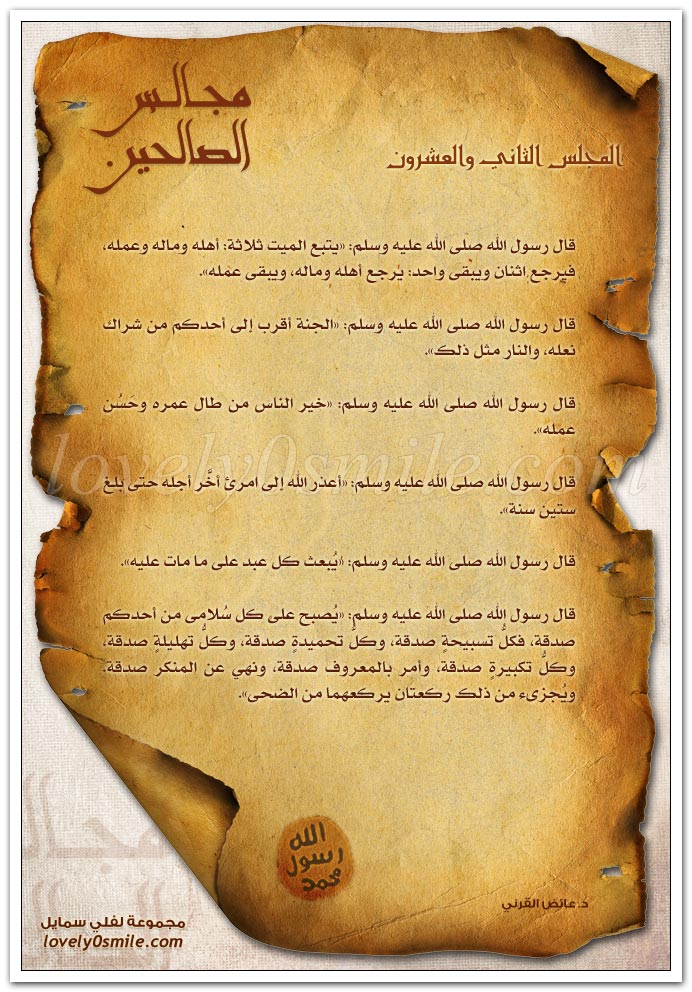 مجالس
الصالحين
المجلس الثاني والعشرون
قال رسول الله صلى الله عليه وسلم: «يتبع الميت ثلاثة: أهله وماله وعمله،
فيرجع اثنان ويبقى واحد: يرجع أهله وماله، ويبقى عمله».
قال رسول الله صلى الله عليه وسلم: «الجنة أقرب إلى أحدكم من شراك
نعله، والنار مثل ذلك».
قال رسول الله صلى الله عليه وسلم: «خير الناس من طال عمره وحَسُن
عمله».
lovely0smile.com
قال رسول الله صلى الله عليه وسلم: «أعذر الله إلى امرئ أخَّر أجله حتى بلغ
ستين سنة».
قال رسول الله صلى الله عليه وسلم: «يُبعث كل عبد على ما مات عليه».
قال رسول الله صلى الله عليه وسلم: «يُصبح على كل سُلامى من أحدكم
صدقة، فكلُّ تسبيحةٍ صدقة، وكلُّ تحميدةٍ صدقة، وكلُّ تهليلةٍ صدقة،
وكلُّ تكبيرةٍ صدقة، وأمر بالمعروف صدقة، ونهي عن المنكر صدقة.
ويُجزىء من ذلك ركعتان يركعهما من الضحى».
الله
رسول
محمد
د.عائض القرني
مجموعة لفلي سمايل
lovely0smile.com